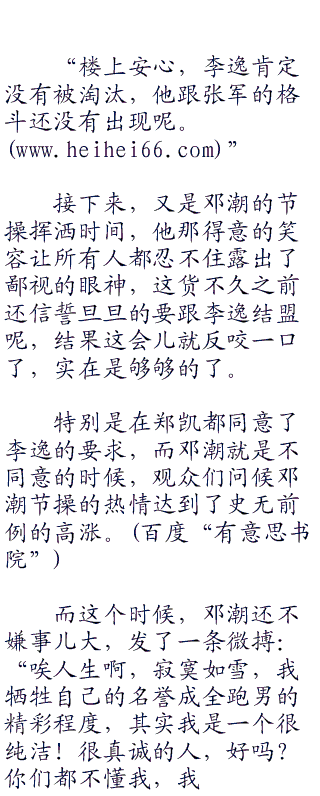 “楼上安心，李逸肯定
没有被淘汰，他跟张军的格
斗还没有出现呢。
(www.heihei66.com)”
接下来，又是邓潮的节
操挥洒时间，他那得意的笑
容让所有人都忍不住露出了
鄙视的眼神，这货不久之前
还信誓旦旦的要跟李逸结盟
呢，结果这会儿就反咬一口
了，实在是够够的了。
特别是在郑凯都同意了
李逸的要求，而邓潮就是不
同意的时候，观众们问候邓
潮节操的热情达到了史无前
例的高涨。(百度“有意思书
院”)
而这个时候，邓潮还不
嫌事儿大，发了一条微搏：
“唉人生啊，寂寞如雪，我
牺牲自己的名誉成全跑男的
精彩程度，其实我是一个很
纯洁！很真诚的人，好吗？
你们都不懂我，我